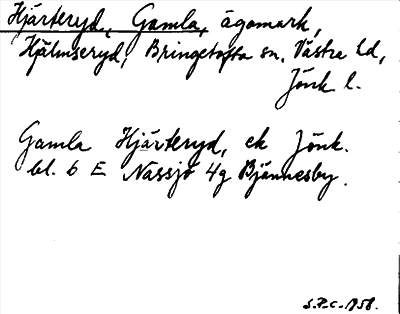 Hjärteryd, Gamla, ägomark,
Hjälmseryd, Bringetofta sn, Västra hd,
Jönk l.
Gamla Hjärteryd, ek Jönk.
bl. 6 E Nässjö 4g Bjännesby.
S.P.C. 1958.